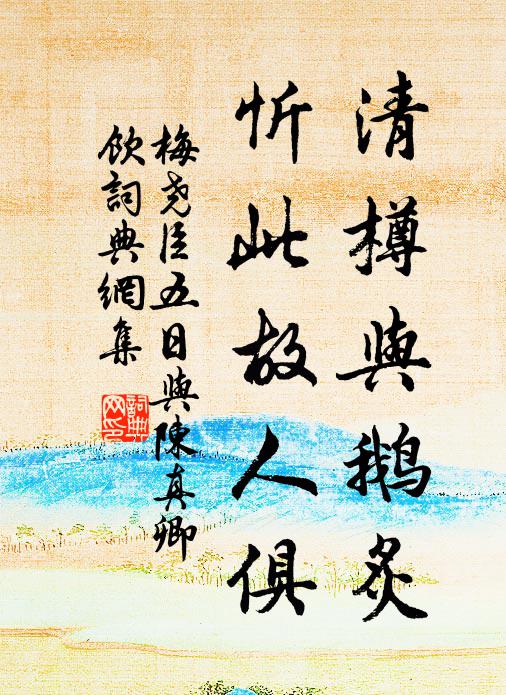 清樽與鵝炙
忻此故人俱
梅堯臣五日與陳真卿
飲詞典網集
詞典網印